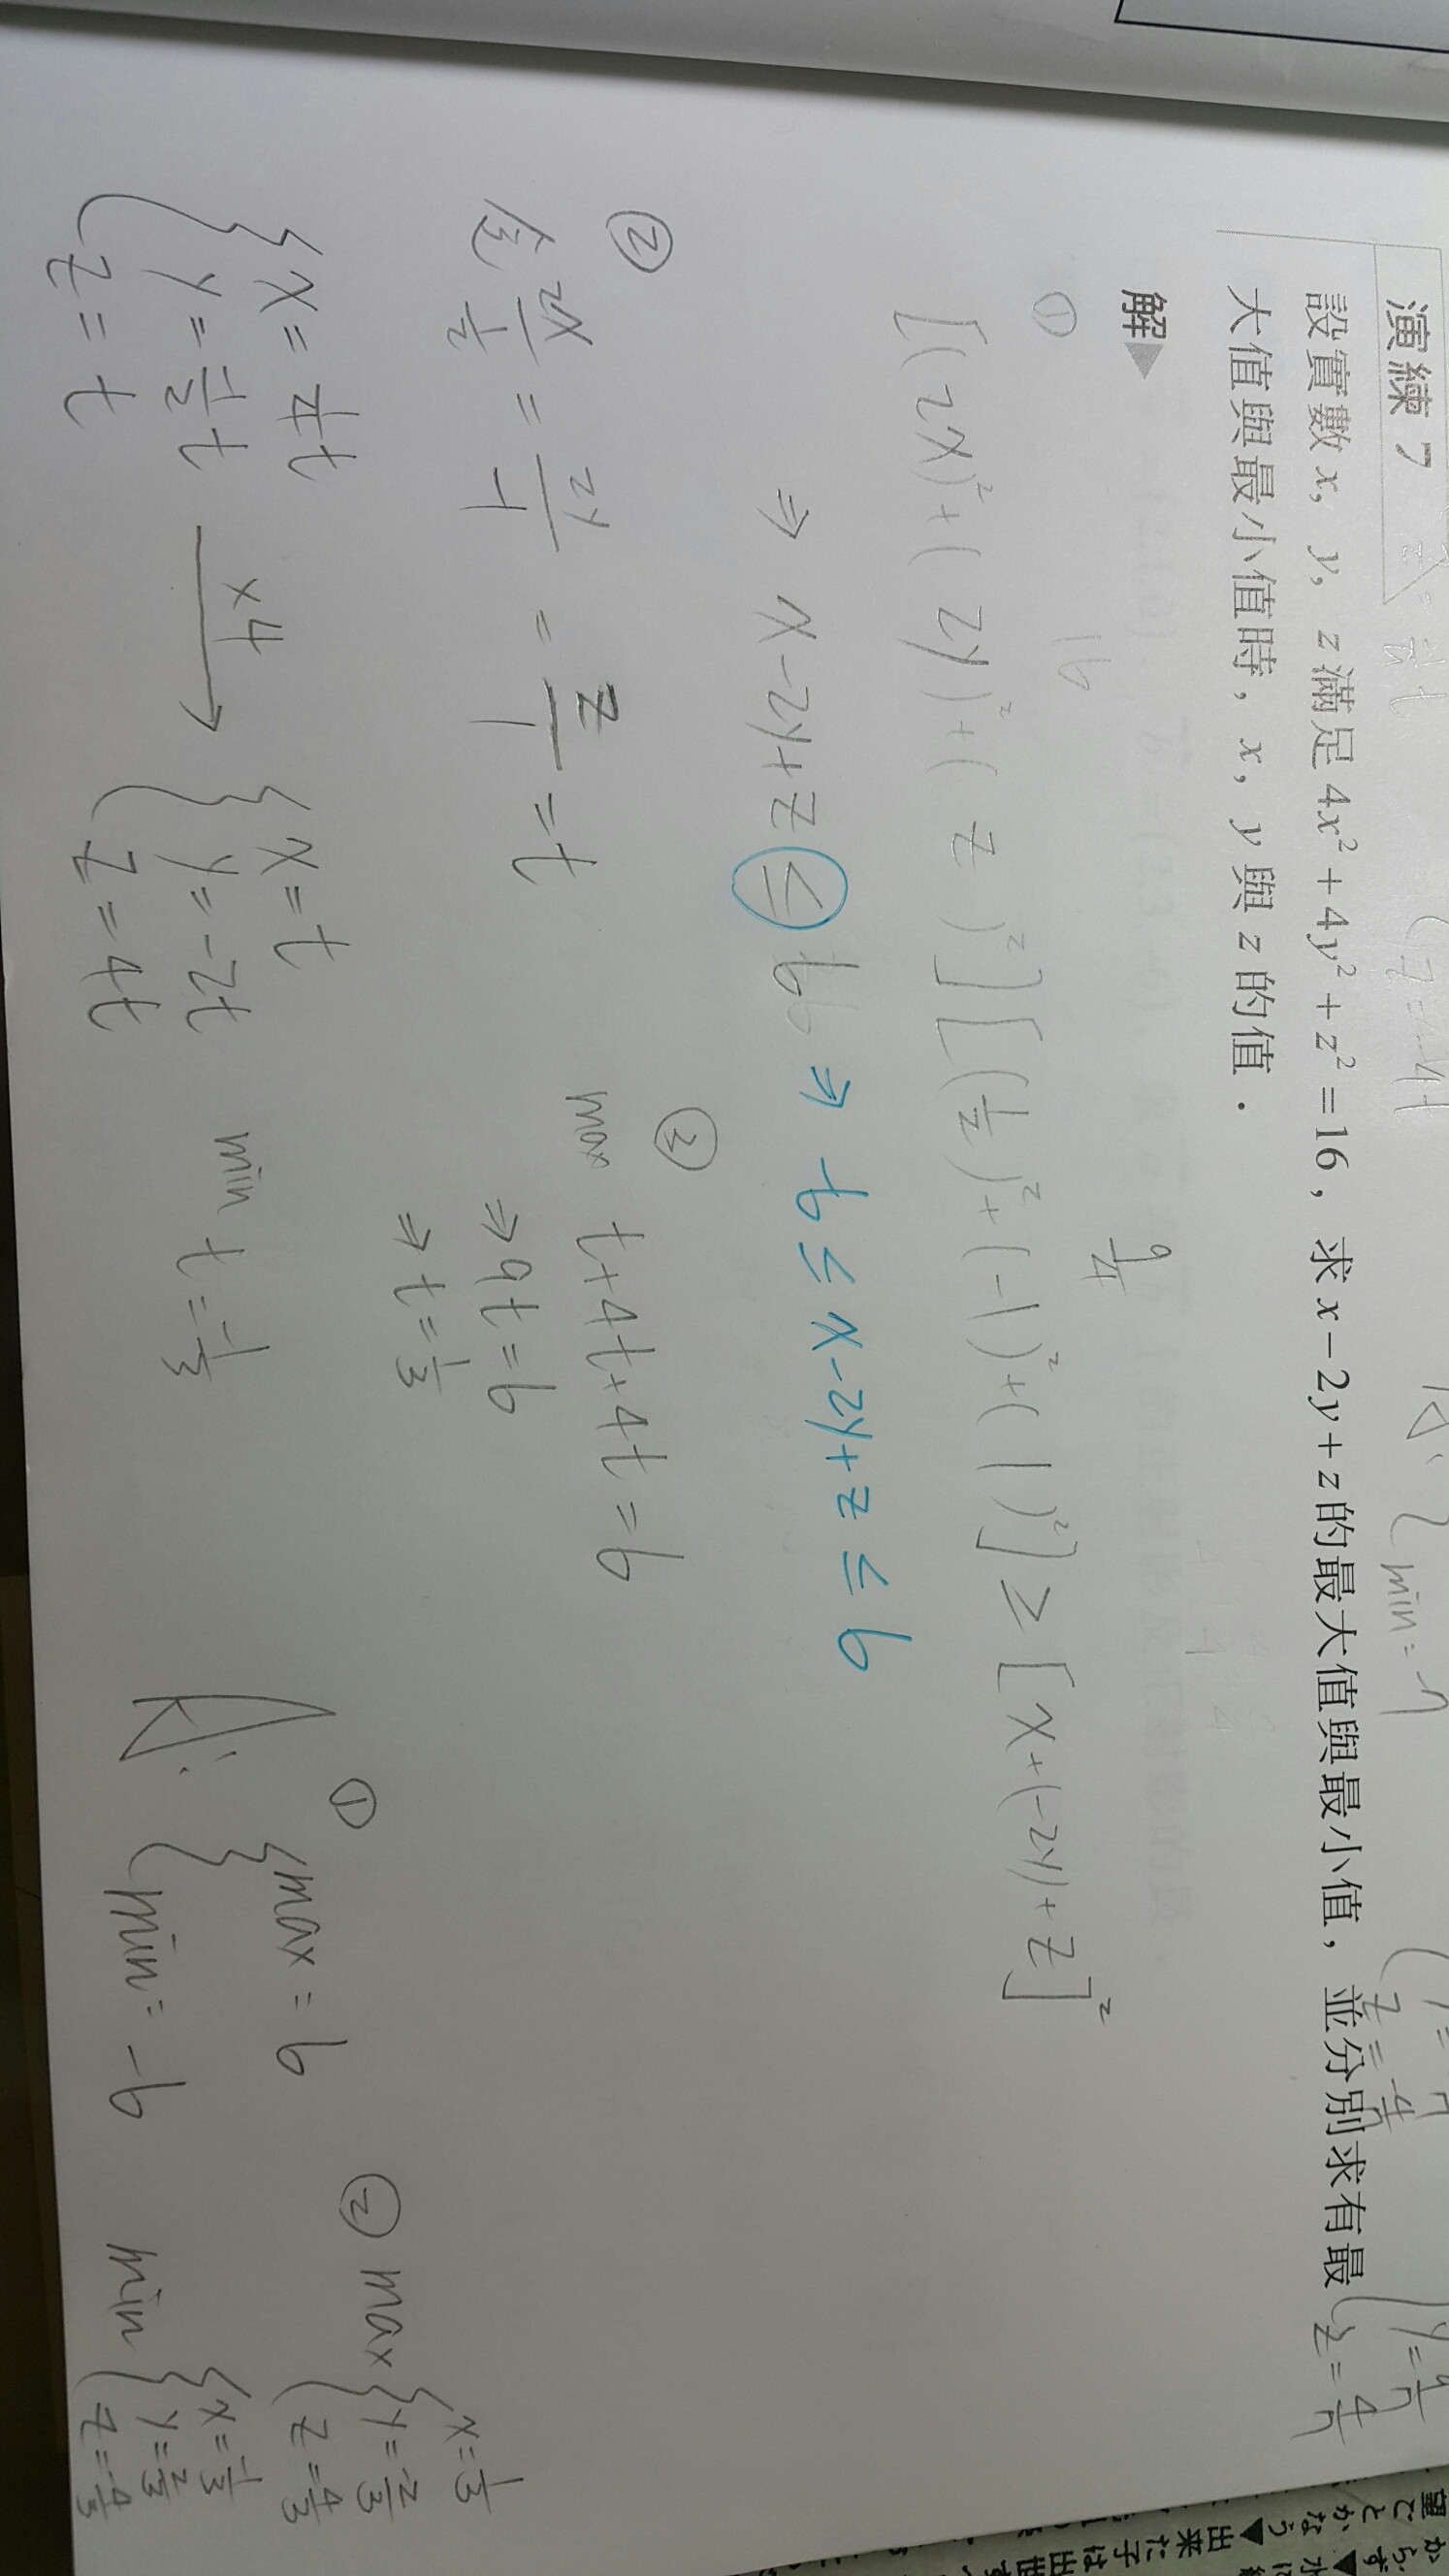 演練 7
設實數 x, y, z 滿足 4x² + 4y² + z² = 16, 求 x − 2y + z 的最大值與最小值, 並分別求有最
大值與最小值時, x, y 與 z 的值.
解▶
① 16 9/4
[(2x)² + (2y)² + (z)²][(1/2)² + (-1)² + (1)²] ≥ [x+(-2y)+z]²
⇒ x-2y+z ≤ 6 ⇒ -6 ≤ x-2y+z ≤ 6
②
令 2x/(1/2) = 2y/-1 = z/1 = t
{ x = 1/4 t
y = -1/2 t
z = t
×4
{ x = t
y = -2t
z = 4t
③
max t+4t+4t = 6
⇒ 9t = 6
⇒ t = 1/3
min t = -1/3
A:
① { max = 6
min = -6
② max { x = 1/3
y = -2/3
z = 4/3
min { x = -1/3
y = 2/3
z = -4/3
min = -7